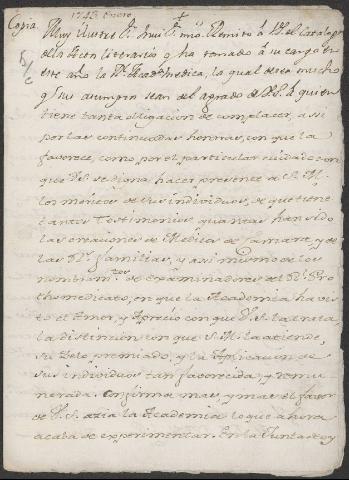 1743 Enero
+
Copia. Muy Ilustre S.r mui S.r mio. Remito á V.S. el Catalogo
de la
literario q ha tomado á su cargo en
este año la R.l Academia Medica, la qual desea mucho
q sus asumptos sean del agrado de V.S. á quien
tiene tanta obligacion de complacer, assi
por las continuadas honras, con que la
favorece, como, por el particular cuidado con
que V.S. se digna hacer presente a S. M.
los meritos de sus individuos, de que tiene
tantos testimonios, quantas han sido
las creaciones de Medicos de Camara, y de
las R.s familias, y assi mismo de los
nombram.tos de examinadores del R.l Pro
thomedicato, en que la Academia ha vis
to el Amor, y Aprecio con que V.S. la trata,
la distincion con que S. M. la atiende,
su Zelo premiado, y la Aplicacion de
sus individuos tan favorecida, y remu
nerada. Confirma mas, y mas el favor
de V.S. azia la Academia lo que ahora
acaba de experimentar. En la Junta de oy